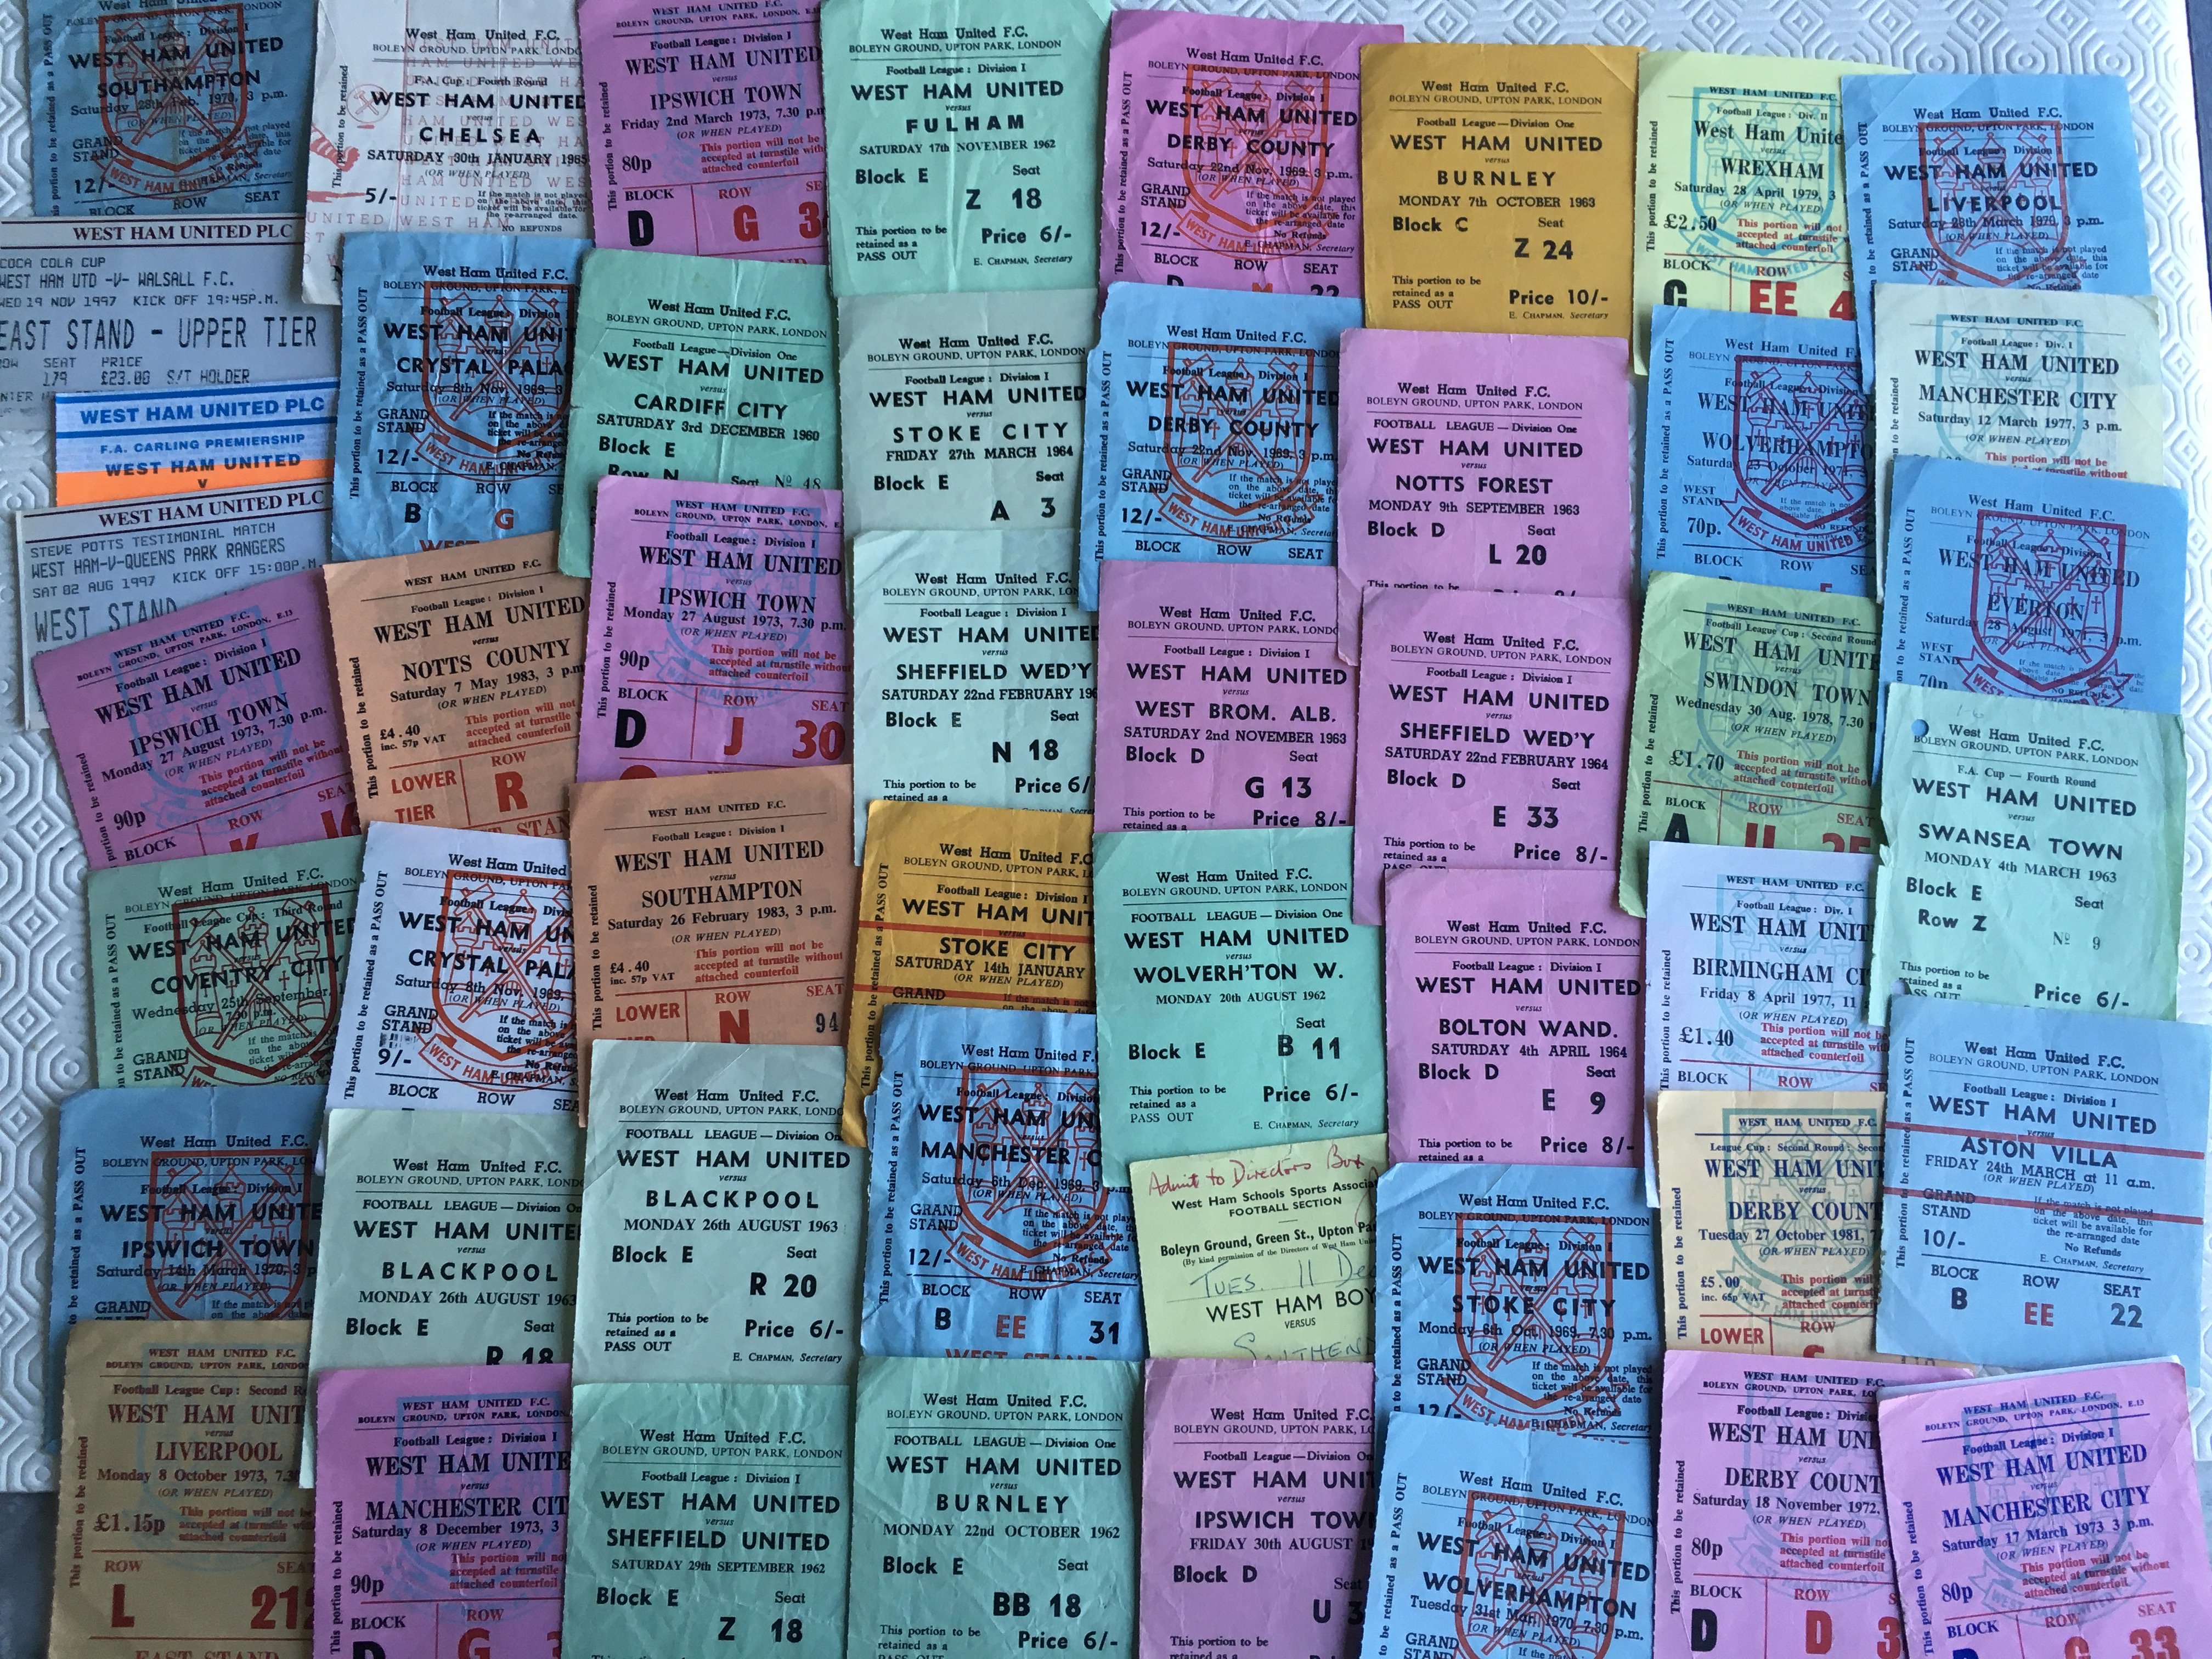 This portion to be retained as a PASS OUT
BOLEYN GROUND, UPTON PARK, LONDON
Football League: Division I
WEST HAM UNITED
versus
SOUTHAMPTON
Saturday 28th Feb. 1970, 3 p.m.
(OR WHEN PLAYED)
GRAND STAND
12/-
BLOCK ROW SEAT
West Ham United F.C.
BOLEYN GROUND, UPTON PARK, LONDON
F.A. Cup : Fourth Round
WEST HAM UNITED
versus
CHELSEA
SATURDAY 30th JANUARY 1965
(OR WHEN PLAYED)
5/-
If the match is not played
on the above date, this
ticket will be available for
the re-arranged date.
NO REFUNDS
WEST HAM UNITED F.C.
BOLEYN GROUND, UPTON PARK, LONDON, E.
Football League : Division I
WEST HAM UNITED
versus
IPSWICH TOWN
Friday 2nd March 1973, 7.30 p.m
(OR WHEN PLAYED)
80p
This portion will not be
accepted at turnstile with
attached counterfoil
BLOCK ROW SE
D G 3
West Ham United F.C.
BOLEYN GROUND, UPTON PARK, LONDON
Football League : Division I
WEST HAM UNITED
versus
FULHAM
SATURDAY 17th NOVEMBER 1962
Block E Seat
Z 18
This portion to be
retained as a
PASS OUT
Price 6/-
E. CHAPMAN, Secretary
West Ham United F.C.
BOLEYN GROUND, UPTON PARK, LONDON
Football League: Division I
WEST HAM UNITED
versus
DERBY COUNTY
Saturday 22nd Nov. 1969, 3 p.m.
(OR WHEN PLAYED)
GRAND STAND
12/-
E. CHAPMAN, Secretary
BLOCK ROW SEAT
West Ham United F.C.
BOLEYN GROUND, UPTON PARK, LONDON
Football League—Division One
WEST HAM UNITED
versus
BURNLEY
MONDAY 7th OCTOBER 1963
Block C Seat
Z 24
This portion to be
retained as a
PASS OUT
Price 10/-
E. CHAPMAN, Secretary
WEST HAM UNITED F.C.
Football League : Div. II
West Ham Unite
versus
WREXHAM
Saturday 28 April 1979, 3
(OR WHEN PLAYED)
£2.50
This portion will not
accepted at turnstile
attached counterfoil
BLOCK ROW
G EE 4
West Ham United F.C.
BOLEYN GROUND, UPTON PARK, LONDON
Football League: Division I
WEST HAM UNITED
versus
LIVERPOOL
Saturday 28th March 1970, 3 p.m.
(OR WHEN PLAYED)
GRAND STAND
WEST HAM UNITED PLC
COCA COLA CUP
WEST HAM UTD -V- WALSALL F.C.
WED 19 NOV 1997 KICK OFF 19:45P.M.
EAST STAND - UPPER TIER
ROW SEAT PRICE
179 £23.00 S/T HOLDER
WEST HAM UNITED PLC
F.A. CARLING PREMIERSHIP
WEST HAM UNITED
V
WEST HAM UNITED PLC
STEVE POTTS TESTIMONIAL MATCH
WEST HAM-V-QUEENS PARK RANGERS
SAT 02 AUG 1997 KICK OFF 15:00P.M.
WEST STAND
West Ham United F.C.
BOLEYN GROUND, UPTON PARK, LOND
Football League: Division
WEST HAM UNIT
versus
CRYSTAL PALAC
Saturday 8th Nov. 1969, 3
(OR WHEN PLAYED)
GRAND STAND
12/-
BLOCK ROW SE
B G
West Ham United F.C.
BOLEYN GROUND, UPTON PARK, LONDON
Football League—Division One
WEST HAM UNITED
versus
CARDIFF CITY
SATURDAY 3rd DECEMBER 1960
Block E
Row N Seat Nº 48
West Ham United F.C.
BOLEYN GROUND, UPTON PARK, LONDON
Football League : Division I
WEST HAM UNITED
versus
STOKE CITY
FRIDAY 27th MARCH 1964
Block E Seat
A 3
West Ham United F.C.
BOLEYN GROUND, UPTON PARK, LONDON
Football League: Division I
WEST HAM UNITED
versus
DERBY COUNTY
Saturday 22nd Nov. 1969, 3 p.m.
(OR WHEN PLAYED)
GRAND STAND
12/-
BLOCK ROW SEAT
West Ham United F.C.
BOLEYN GROUND, UPTON PARK, LONDON
FOOTBALL LEAGUE — Division One
WEST HAM UNITED
versus
NOTTS FOREST
MONDAY 9th SEPTEMBER 1963
Block D Seat
L 20
West Ham United F.
WEST HAM UNIT
WOLVERHAMPTO
Saturday 23 October 1971
WEST STAND
70p.
BLOCK ROW SEA
WEST HAM UNITED F.C.
Football League : Div. I
WEST HAM UNITED
versus
MANCHESTER CITY
Saturday 12 March 1977, 3 p.m.
(OR WHEN PLAYED)
West Ham United F.C.
BOLEYN GROUND, UPTON PARK, LONDON
Football League: Division I
WEST HAM UNITED
EVERTON
Saturday 28 August 1971, 3 p.m.
WEST STAND
70p.
WEST HAM UNITED F.C.
BOLEYN GROUND, UPTON PARK, LONDON, E.13
Football League : Division I
WEST HAM UNITED
versus
IPSWICH TOWN
Monday 27 August 1973, 7.30 p.m.
(OR WHEN PLAYED)
90p
This portion will not be
accepted at turnstile without
attached counterfoil
BLOCK ROW SEAT
WEST HAM UNITED F.C.
Football League : Division I
WEST HAM UNITED
versus
NOTTS COUNTY
Saturday 7 May 1983, 3 p.m
(OR WHEN PLAYED)
£4.40
inc. 57p VAT
This portion will not
accepted at turnstile
attached counterfoil
LOWER TIER
ROW
R
WEST HAM UNITED F.C.
BOLEYN GROUND, UPTON PARK, LONDON, E.
Football League : Division I
WEST HAM UNITED
versus
IPSWICH TOWN
Monday 27 August 1973, 7.30 p.m.
(OR WHEN PLAYED)
90p
This portion will not be
accepted at turnstile without
attached counterfoil
BLOCK ROW SEAT
D J 30
West Ham United F.C.
BOLEYN GROUND, UPTON PARK, LON
Football League : Division I
WEST HAM UNITE
versus
SHEFFIELD WED'Y
SATURDAY 22nd FEBRUARY 196
Block E Seat
N 18
This portion to be
retained as a
Price 6/
West Ham United F.C.
BOLEYN GROUND, UPTON PARK, LONDO
Football League : Division I
WEST HAM UNITED
versus
WEST BROM. ALB.
SATURDAY 2nd NOVEMBER 1963
Block D Seat
G 13
This portion to be
retained as a
Price 8/-
West Ham United F.C.
BOLEYN GROUND, UPTON PARK, LONDON
Football League : Division I
WEST HAM UNITED
versus
SHEFFIELD WED'Y
SATURDAY 22nd FEBRUARY 1964
Block D Seat
E 33
This portion to be
retained as a
PASS OUT
Price 8/-
WEST HAM UNITED F.C.
Football League Cup : Second Round
WEST HAM UNITE
versus
SWINDON TOWN
Wednesday 30 Aug. 1978, 7.30
(OR WHEN PLAYED)
£1.70
This portion will not be
accepted at turnstile witho
attached counterfoil
BLOCK ROW SEAT
West Ham United F.C.
BOLEYN GROUND, UPTON PARK, LONDON
F.A. Cup — Fourth Round
WEST HAM UNITED
versus
SWANSEA TOWN
MONDAY 4th MARCH 1963
Block E Seat
Row Z Nº 9
This portion to be
retained as a
PASS OUT
Price 6/-
West Ham United F.C.
BOLEYN GROUND, UPTON PARK, LONDON
Football League Cup: Third Round
WEST HAM UNITED
COVENTRY CITY
Wednesday 25th September, 1
7.30 p.m.
(OR WHEN PLAYED)
GRAND STAND
West Ham United
WEST HAM UN
CRYSTAL PALA
Saturday 8th Nov. 1969,
(OR WHEN PLAYED)
GRAND STAND
9/-
BLOCK ROW SEA
WEST HAM UNITED F.C.
Football League : Division I
WEST HAM UNITED
versus
SOUTHAMPTON
Saturday 26 February 1983, 3 p.m.
(OR WHEN PLAYED)
£4.40
inc. 57p VAT
This portion will not be
accepted at turnstile without
attached counterfoil
LOWER ROW SEAT
N 94
West Ham United F.C
BOLEYN GROUND, UPTON PARK, LON
Football League: Division I
WEST HAM UNIT
STOKE CITY
SATURDAY 14th JANUARY
(OR WHEN PLAYED)
GRAND
West Ham United F.C.
BOLEYN GROUND, UPTON PARK, LONDON
FOOTBALL LEAGUE — Division One
WEST HAM UNITED
versus
WOLVERH'TON W.
MONDAY 20th AUGUST 1962
Seat
Block E B 11
This portion to be
retained as a
PASS OUT
Price 6/-
E. CHAPMAN, Secretary
West Ham United F.C.
BOLEYN GROUND, UPTON PARK, LONDON
Football League : Division I
WEST HAM UNITED
versus
BOLTON WAND.
SATURDAY 4th APRIL 1964
Block D Seat
E 9
This portion to be
Price 8/-
WEST HAM UNITED F.C.
Football League : Div. I
WEST HAM UNIT
versus
BIRMINGHAM CI
Friday 8 April 1977, 11
(OR WHEN PLAYED)
£1.40
This portion will not be
accepted at turnstile
attached counterfoil
BLOCK ROW
West Ham United F.C.
BOLEYN GROUND, UPTON PARK, LONDON
Football League : Division I
WEST HAM UNITED
versus
ASTON VILLA
FRIDAY 24th MARCH at 11 a.m.
(OR WHEN PLAYED)
GRAND STAND
10/-
If the match is not played
on the above date, this
ticket will be available for
the re-arranged date
No Refunds
E. CHAPMAN, Secretary
BLOCK ROW SEAT
B EE 22
West Ham United F.C.
BOLEYN GROUND, UPTON PARK, LON
Football League: Division I
WEST HAM UNITED
IPSWICH TOWN
Saturday 14th March 1970, 3 p
(OR WHEN PLAYED)
GRAND
West Ham United F.C.
BOLEYN GROUND, UPTON PARK, LOND
FOOTBALL LEAGUE — Division On
WEST HAM UNITE
versus
BLACKPOOL
MONDAY 26th AUGUST 1963
Block E Seat
R 18
West Ham United F.C.
BOLEYN GROUND, UPTON PARK, LONDO
FOOTBALL LEAGUE — Division On
WEST HAM UNITED
versus
BLACKPOOL
MONDAY 26th AUGUST 1963
Block E Seat
R 20
This portion to be
retained as a
PASS OUT
Price 6/-
E. CHAPMAN, Secretary
West Ham United F.
BOLEYN GROUND, UPTON PARK
Football League: Division
WEST HAM UN
MANCHESTER C
Saturday 6th Dec. 1969, 3
(OR WHEN PLAYED)
GRAND STAND
12/-
E. CHAPMAN, Secretary
BLOCK ROW SEAT
B EE 31
WEST STAND
Admit to Directors Box
West Ham Schools Sports Associa
FOOTBALL SECTION
Boleyn Ground, Green St., Upton Pa
(By kind permission of the Directors of West Ham Unit
TUES. 11 De
WEST HAM BOY
VERSUS
SOUTHEN
West Ham United F.C.
BOLEYN GROUND, UPTON PARK, LONDON
Football League: Division I
WEST HAM UNITED
STOKE CITY
Monday 6th Oct. 1969, 7.30 p.m.
(OR WHEN PLAYED)
GRAND STAND
12/-
E. CHAPMAN, Secretary
WEST HAM UNITED F.C.
League Cup : Second Round : Seco
WEST HAM UNIT
versus
DERBY COUNT
Tuesday 27 October 1981, 7
(OR WHEN PLAYED)
£5.00
inc. 65p VAT
This portion will
accepted at turnst
attached counterf
LOWER
WEST HAM UNITED F.C.
BOLEYN GROUND, UPTON PARK, LONDO
Football League Cup : Second R
WEST HAM UNIT
versus
LIVERPOOL
Monday 8 October 1973, 7.3
(OR WHEN PLAYED)
£1.15p
This portion will not
accepted at turnstile
attached counterfoil
ROW SEAT
L 212
EAST STAND
WEST HAM UNITED F.C.
BOLEYN GROUND, UPTON PARK, LONDON,
Football League : Division I
WEST HAM UNITE
versus
MANCHESTER CIT
Saturday 8 December 1973, 3
(OR WHEN PLAYED)
90p
This portion will no
accepted at turnstile
attached counterfoil
BLOCK ROW
G 3
West Ham United F.C.
BOLEYN GROUND, UPTON PARK, LONDON
Football League : Division I
WEST HAM UNITED
versus
SHEFFIELD UNITED
SATURDAY 29th SEPTEMBER 1962
Block E Seat
Z 18
West Ham United F.C.
BOLEYN GROUND, UPTON PARK, LONDON
FOOTBALL LEAGUE — Division One
WEST HAM UNITED
versus
BURNLEY
MONDAY 22nd OCTOBER 1962
Block E Seat
BB 18
This portion to be
retained as a
PASS OUT
Price 6/-
West Ham United F.C.
BOLEYN GROUND, UPTON PARK, LONDON
Football League — Division On
WEST HAM UNIT
versus
IPSWICH TOW
FRIDAY 30th AUGUST 1
Block D Seat
U 3
This portion to be
West Ham United F.C.
BOLEYN GROUND, UPTON PARK, LONDON
Football League: Division I
WEST HAM UNITED
WOLVERHAMPTON
Tuesday 31st Mar. 1970, 7.30 p.m.
(OR WHEN PLAYED)
GRAND STAND
WEST HAM UNITED F.C.
BOLEYN GROUND, UPTON PARK, LO
Football League : Divisi
WEST HAM UNI
versus
DERBY COUNT
Saturday 18 November 1972,
(OR WHEN PLAYED)
80p
This portion will not
accepted at turnstile
attached counterfoil
BLOCK ROW
D D 3
WEST HAM UNITED F.C.
BOLEYN GROUND, UPTON PARK, LONDON, E.13
Football League : Division I
WEST HAM UNITED
versus
MANCHESTER CITY
Saturday 17 March 1973 3 p.m.
(OR WHEN PLAYED)
80p
This portion will not be
accepted at turnstile without
attached counterfoil
BLOCK ROW SEAT
G 33